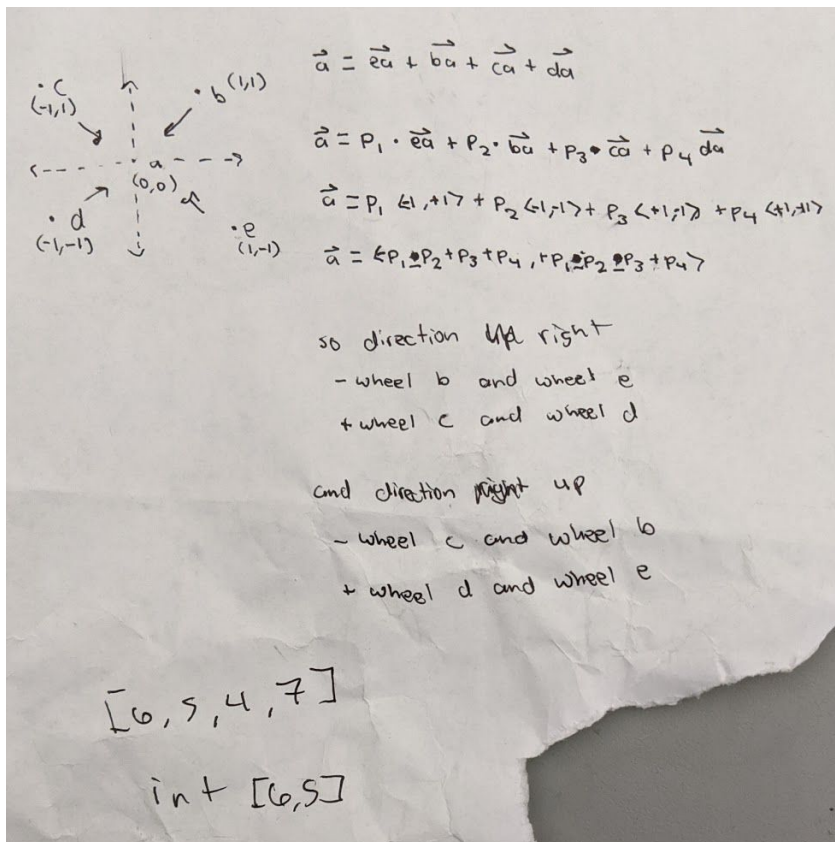 .c
(-1,1)
. b (1,1)
a
(0,0)
. d
(-1,-1)
. e
(1,-1)
a⃗ = ea⃗ + ba⃗ + ca⃗ + da⃗
a⃗ = P₁ · ea⃗ + P₂ · ba⃗ + P₃ · ca⃗ + P₄ da⃗
a⃗ = P₁ <-1,+1> + P₂ <-1,-1> + P₃ <+1,-1> + P₄ <+1,+1>
a⃗ = <-P₁ - P₂ + P₃ + P₄, +P₁ - P₂ - P₃ + P₄>
so direction right
- wheel b and wheel e
+ wheel c and wheel d
and direction up
- wheel c and wheel b
+ wheel d and wheel e
[6,5,4,7]
int [6,5]